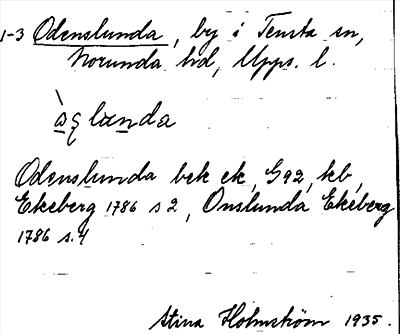 1-3 Odenslunda, by i Tensta sn,
Norunda hd, Upps. l.
Odenslunda bek ek, G92, kb,
Ekeberg 1786 s 2, Onslunda Ekeberg
1786 s. 4
Stina Holmström 1935.